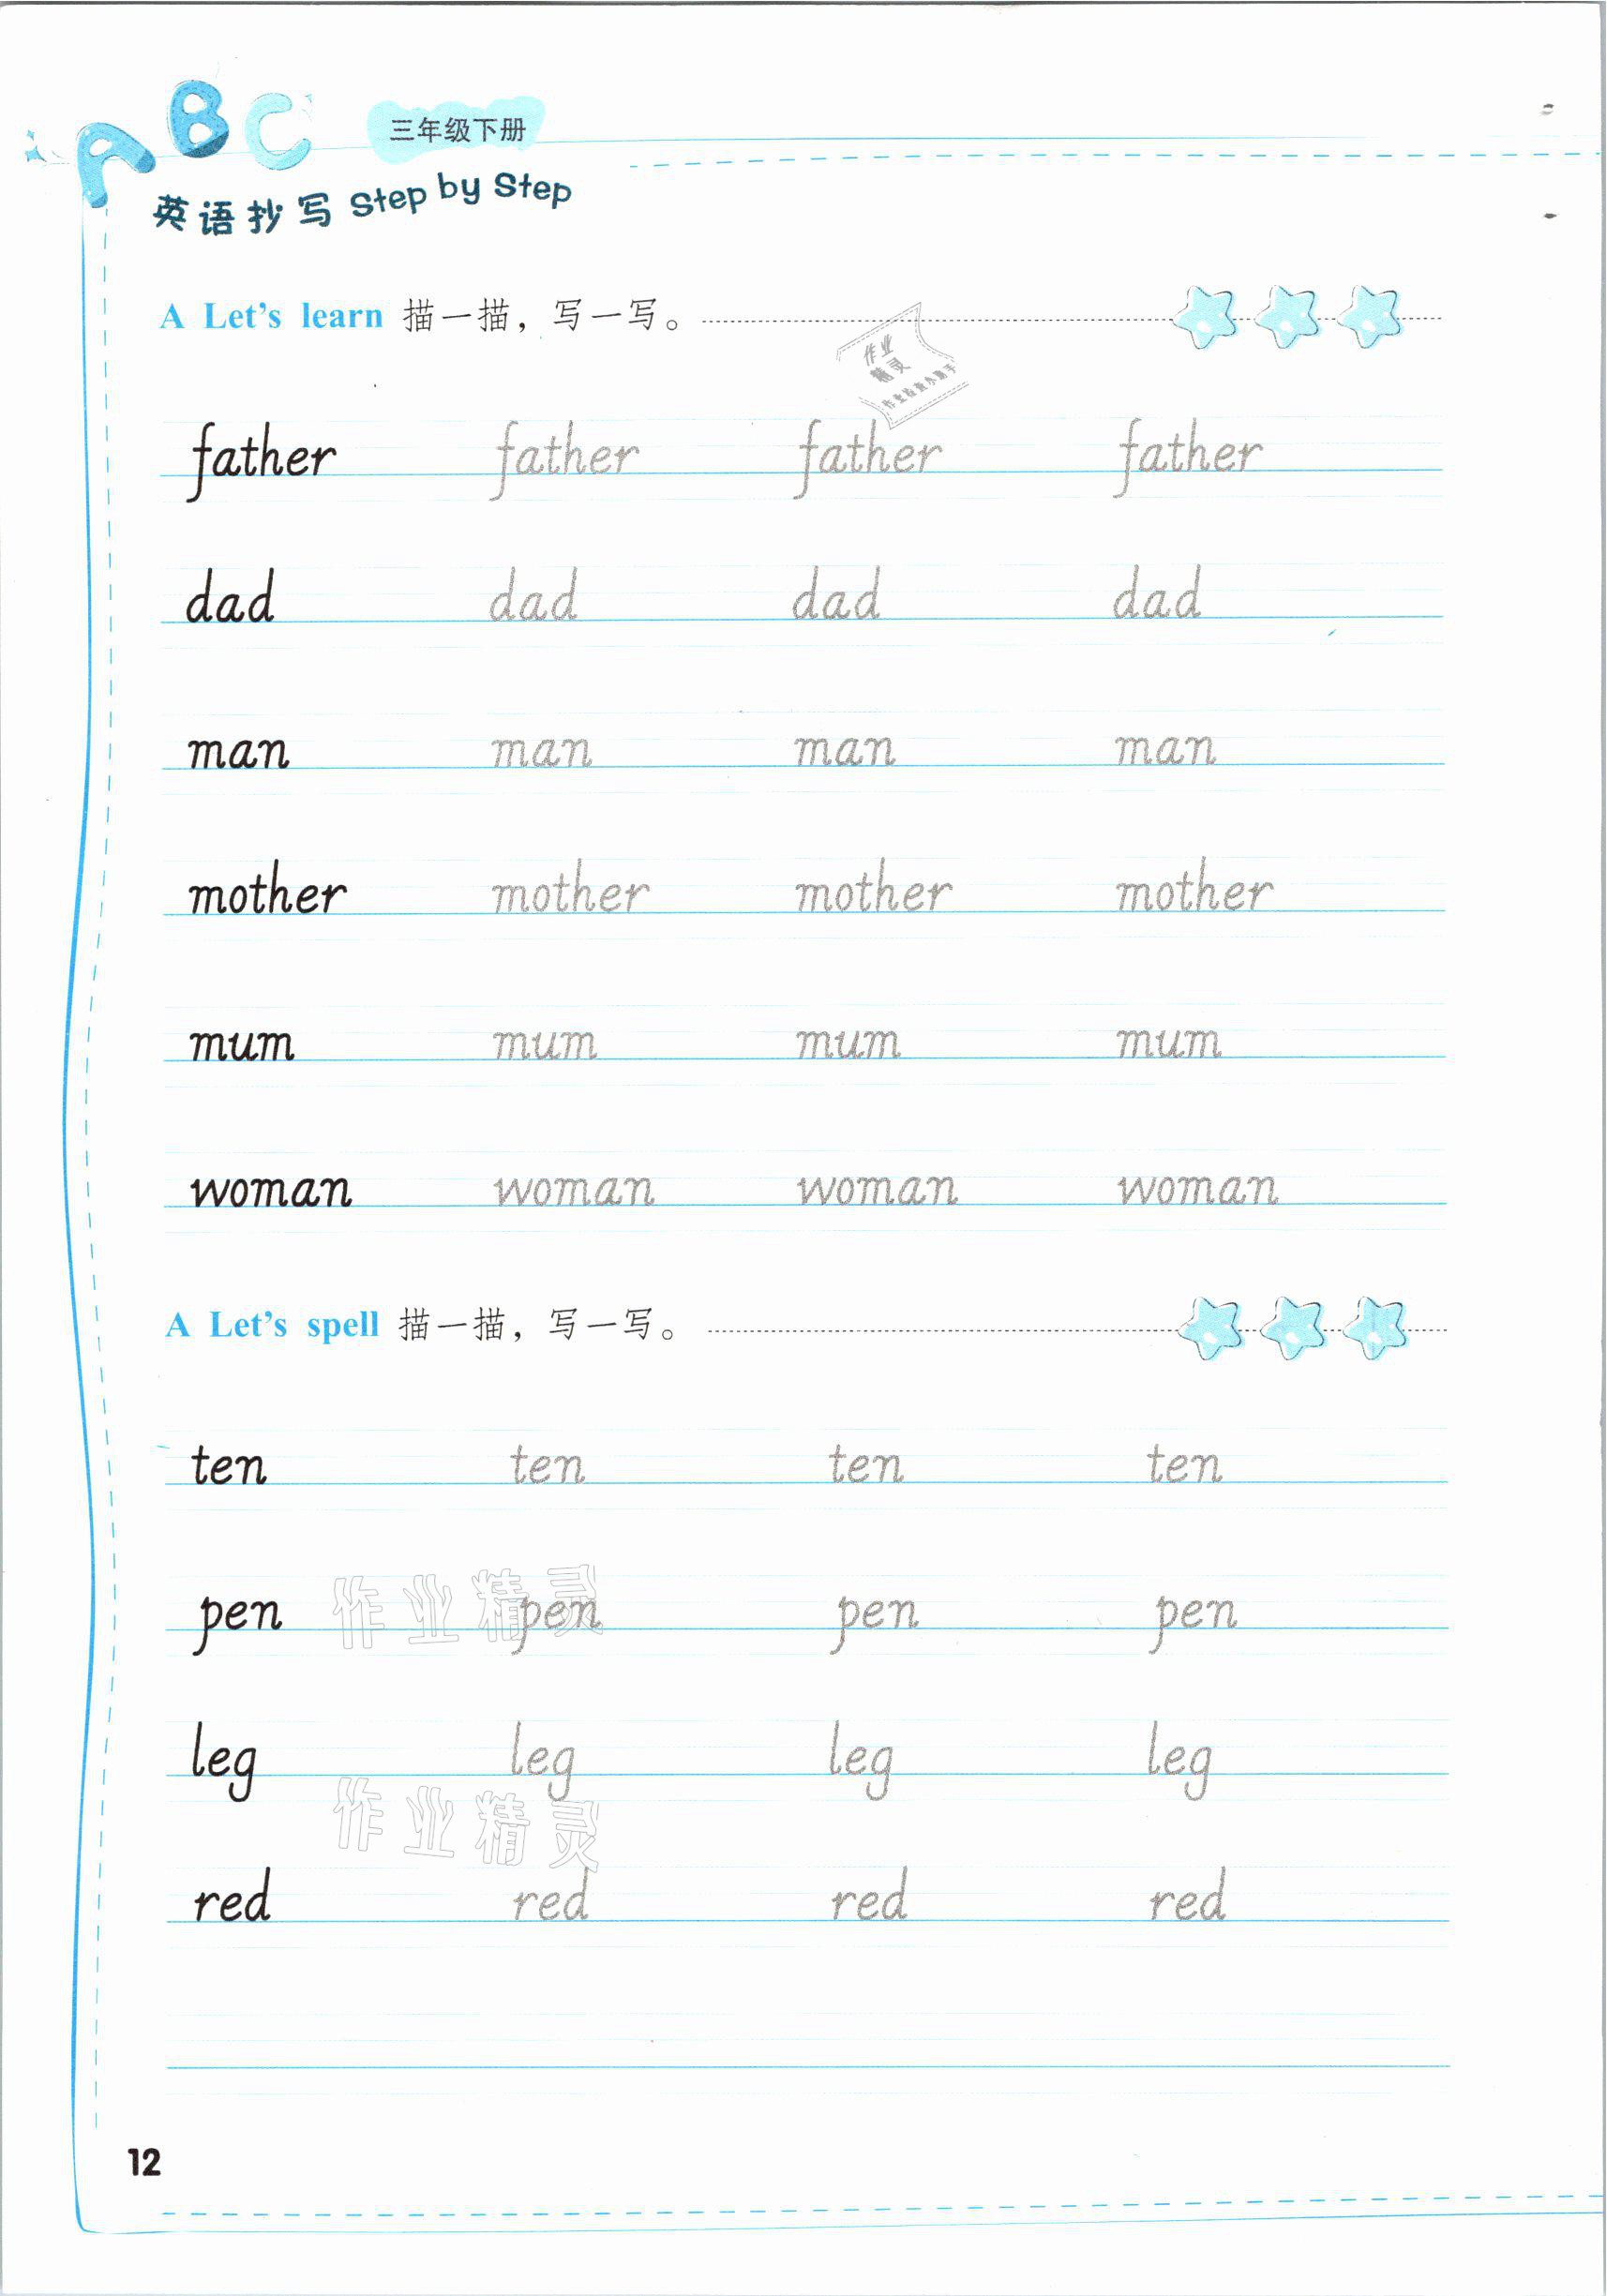 ABC
三年级下册
英语抄写 Step by Step
A Let's learn 描一描，写一写。
作业
精灵
father father father father
dad dad dad dad
man man man man
mother mother mother mother
mum mum mum mum
woman woman woman woman
A Let's spell 描一描，写一写。
ten ten ten ten
pen pen pen pen
作业精灵
leg leg leg leg
作业精灵
red red red red
12